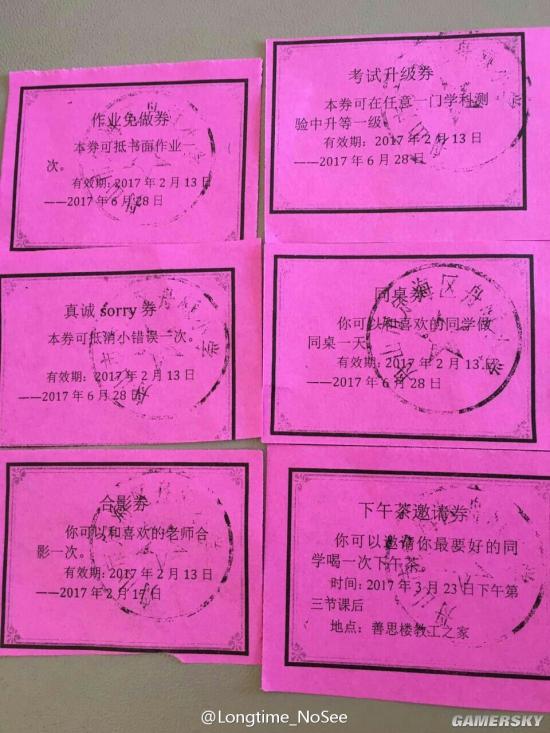 作业免做券
本券可抵书面作业一
次。
有效期：2017 年 2 月 13 日
——2017 年 6 月 28 日
考试升级券
本券可在任意一门学科测
验中升等一级。
有效期：2017 年 2 月 13 日
——2017 年 6 月 28 日
真诚 sorry 券
本券可抵消小错误一次。
有效期：2017 年 2 月 13 日
——2017 年 6 月 28 日
同桌券
你可以和喜欢的同学做
同桌一天。
有效期：2017 年 2 月 13 日
——2017 年 6 月 28 日
合影券
你可以和喜欢的老师合
影一次。
有效期：2017 年 2 月 13 日
——2017 年 2 月 17 日
下午茶邀请券
你可以邀请你最要好的同
学喝一次下午茶。
时间：2017 年 3 月 23 日下午第
三节课后
地点：善思楼教工之家
@Longtime_NoSee
GAMERSKY